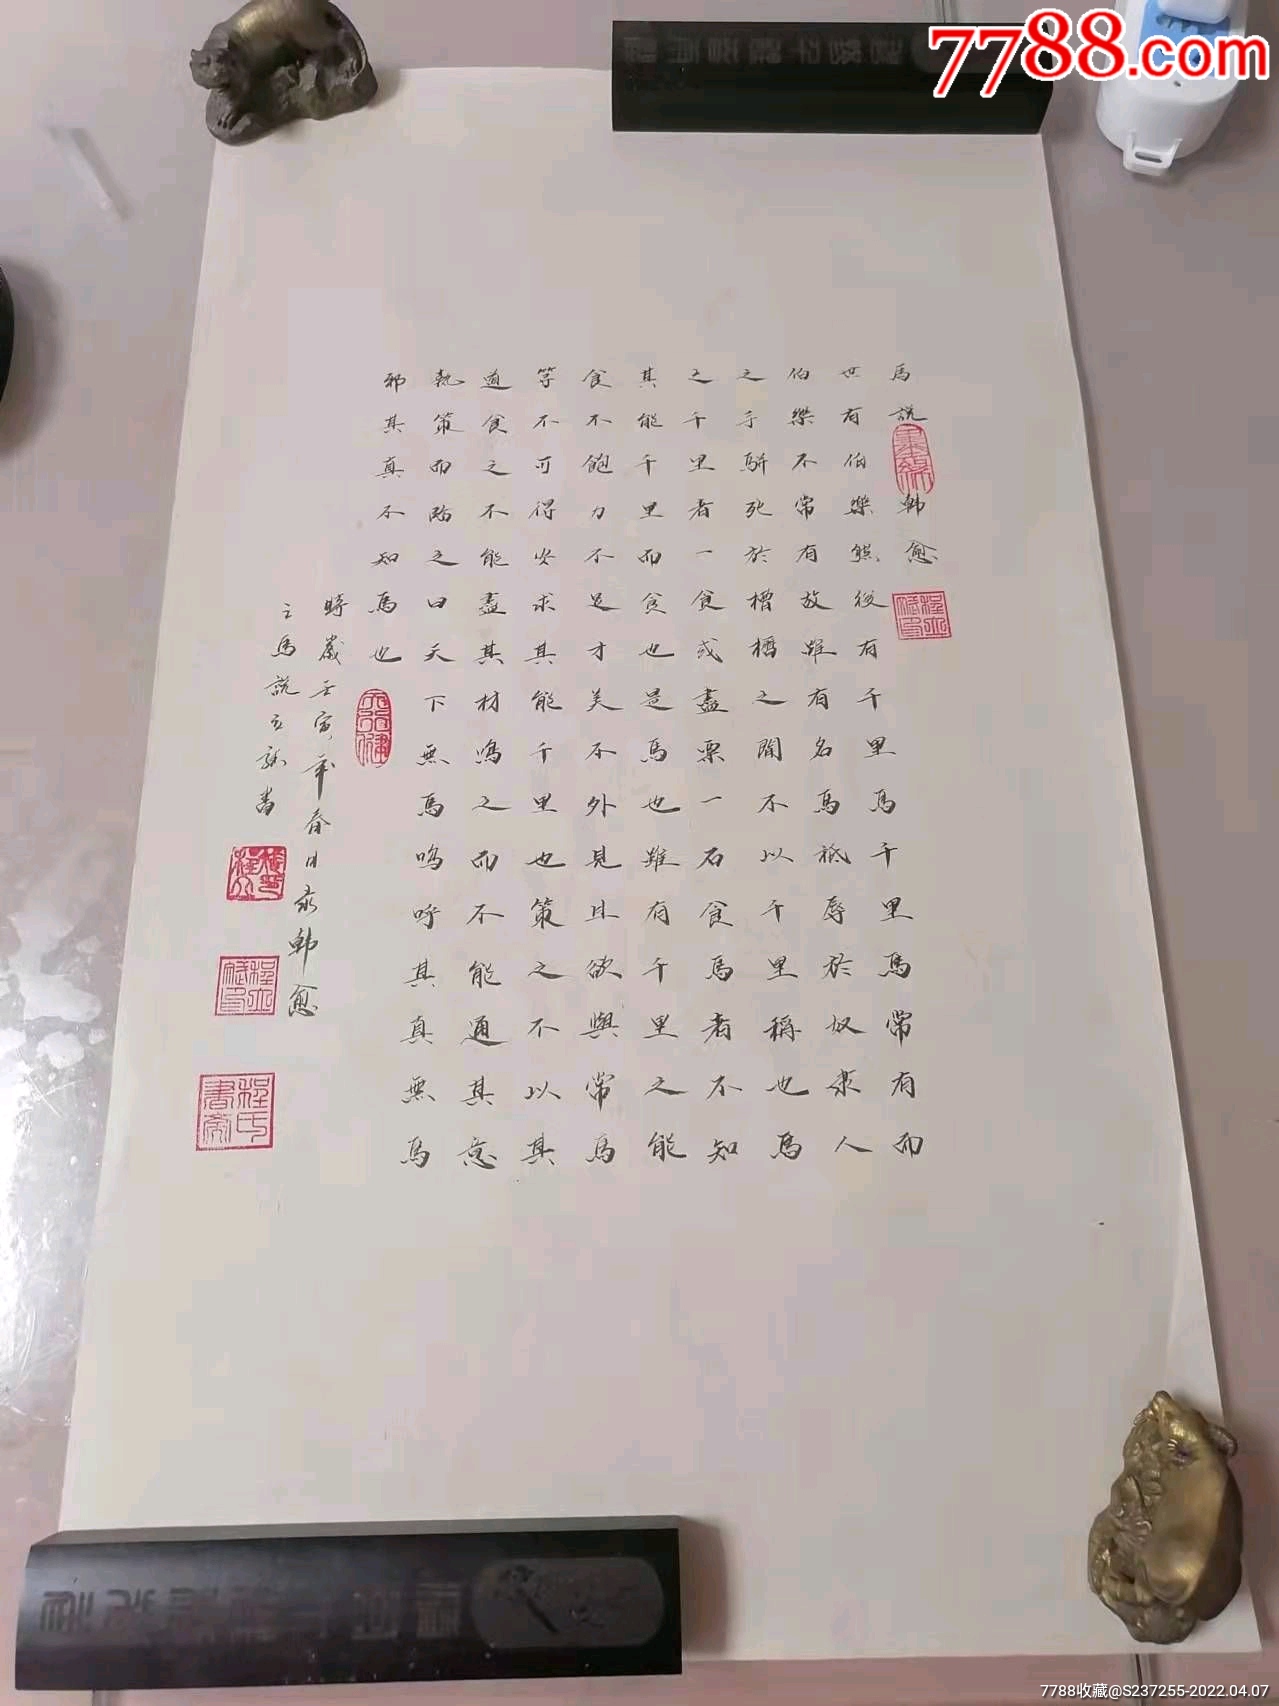 馬說 韓愈
世有伯樂然後有千里馬千里馬常有而
伯樂不常有故雖有名馬祗辱於奴隶人
之手駢死於槽櫪之間不以千里稱也馬
之千里者一食或盡粟一石食馬者不知
其能千里而食也是馬也雖有千里之能
食不飽力不足才美不外見且欲與常馬
等不可得安求其能千里也策之不以其
道食之不能盡其材鳴之而不能通其意
執策而臨之曰天下無馬嗚呼其真無馬
邪其真不知馬也
時歲壬寅年春日录韓愈
之馬說立斌書
墨緣
天行健
程氏書斋
7788.com
7788收藏@S237255-2022.04.07